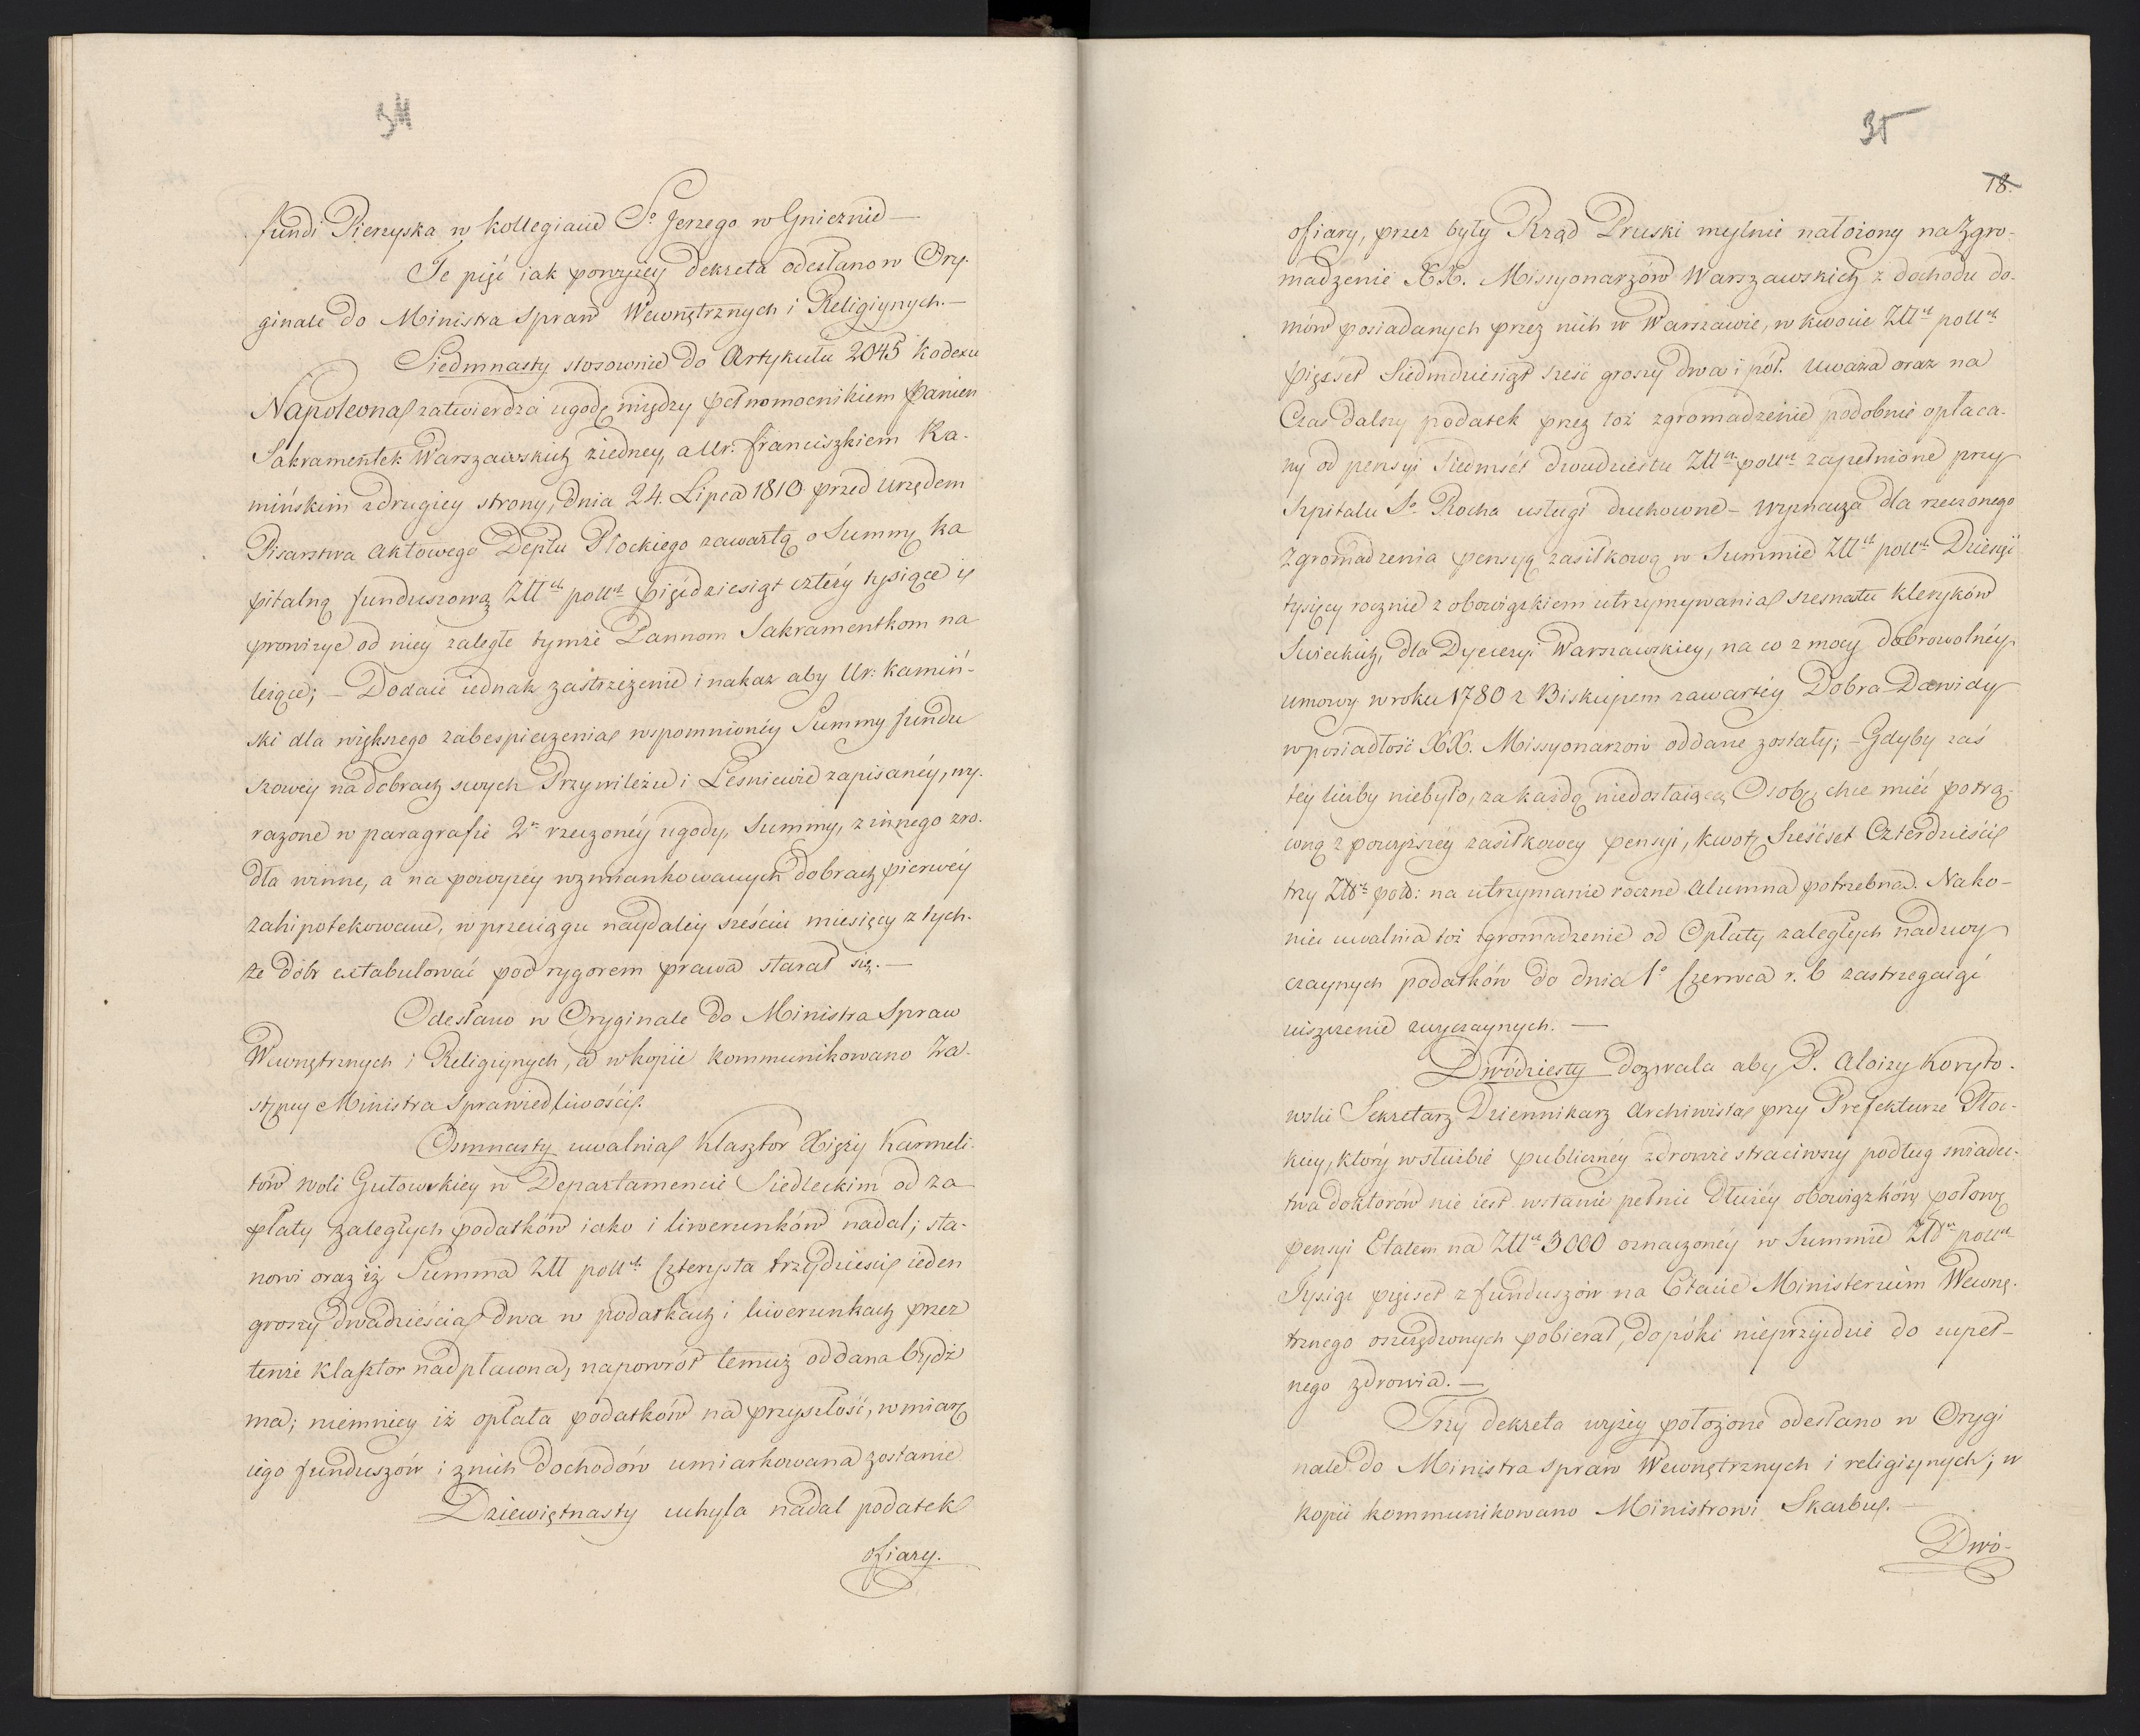 34
fundi Pierzyska w Kollegiacie So Jerzego w Gnieznie —
Te pięć iak powyżey dekreta odesłano w Ory-
ginale do Ministra Spraw Wewnętrznych i Religiynych. —
Siedmnasty stosownie do Artykułu 2045 Kodexu
Napoleona zatwierdza ugodę między pełnomocnikiem Panien
Sakramentek Warszawskich ziedney, a Ur. Franciszkiem Ka-
mińskim zdrugiey strony, dnia 24. Lipca 1810 przed Urzędem
Pisarstwa Aktowego Deptu Płockiego zawartą o Summę ka
pitalną funduszową Złłch poll.ch pięćdziesiąt cztéry tysiące y
prowizye od niey zaległe tymże Pannom Sakramentkom na
leżące; — Dodaie iednak zastrzeżenie i nakaz aby Ur: Kamiń-
ski dla większego zabespieczenia wspomnionéy Summy fundu
szowéy na dobrach swych Przywileżu i Lesniewie zapisanéy, wy-
rażone w paragrafie 2m rzeczonéy ugody, Summy, z innego zro-
dła winne, a na powyżéy wzmiankowanych dobrach pierwéy
zahipotekowane, w przeciągu naydaléy sześciu miesięcy z tych-
że dóbr extabulować pod rygorem prawa starał się. —
Odesłano w Oryginale do Ministra Spraw
Wewnętrznych i Religiynych, a w kopii kommunikowano Za-
stępcy Ministra Sprawiedliwości.
Osmnasty uwalnia Klasztor Xięży Karmeli-
tów woli Gułowskiey w Departamencie Siedleckim od za-
płaty zaległych podatków iako i liwerunków nadal; sta-
nowi oraz iż Summa Złł poll.ch Czterysta trzydzieści ieden
groszy dwadzieścia dwa w podatkach i liwerunkach przez
tenże Klasztor nadpłacona, napowrót temuż oddana bydź
ma; niemniey iż opłata podatków na przyszłość, w miarę
iego funduszów i z nich dochodów umiarkowana zostanie
Dziewiętnasty uchyla nadal podatek
ofiary.
35
18.
ofiary, przez były Rząd Pruski mylnie nałożony na Zgro-
madzenie XX. Missyonarzów Warszawskich z dochodu do-
mów posiadanych przez nich w Warszawie, w kwocie Złłch poll.ch
pięćset Siedmdziesiąt sześć groszy dwa i pół. Uważa oraz na
Czas dalszy podatek przez toż zgromadzenie podobnie opłaca-
ny od pensyi Siedmset dwudziestu Złłch poll.ch zapełnione przy
Szpitalu So Rocha usługi duchowne – Wyznacza dla rzeczonego
Zgromadzenia pensyą zasiłkową w Summie Złłch poll.ch Dziesięć
tysięcy rocznie z obowiązkiem utrzymywania szesnastu kleryków
Swieckich, dla Dyecezyi Warszawskiey, na co z mocy dobrowolnéy
umowy w roku 1780 z Biskupem zawartéy Dobra Dawidy
w posiadłość XX. Missyonarzów oddane zostały; – Gdyby zaś
téy liczby niebyło, za każdą niedostaiącą Osobę chce mieć potrą-
coną z powyższéy zasiłkowey pensyi, kwotę Sześćset Czterdzieści
trzy Złłch poll: na utrzymanie roczne Alumna potrzebną. Nako-
niec uwalnia toż zgromadzenie od Opłaty zaległych nadzwy
czaynych podatków do dnia 1o Czerwca r. b zastrzegaiąc
uiszczenie zwyczaynych. —
Dwódziesty dozwala aby P. Aloizy Koryto-
wski Sekretarz Dziennikarz Archiwista przy Prefekturze Płoc-
kiey, który w służbie publicznéy zdrowie straciwszy podług swiadec-
twa doktorów nie iest w stanie pełnić dłużéy obowiązków, połowę
pensyi Etatem na Złłch 3000 oznaczonéy w Summie Złłch poll.ch
Tysiąc pięćset z funduszów na Etacie Ministerium Wewnę-
trznego oszczędzonych pobierał, dopóki nieprzyidzie do zupeł-
nego zdrowia. —
Trzy dekreta wyżéy położone odesłano w Orygi
nale do Ministra Spraw Wewnętrznych i religiynych; w
kopii kommunikowano Ministrowi Skarbu. —
Dwó-